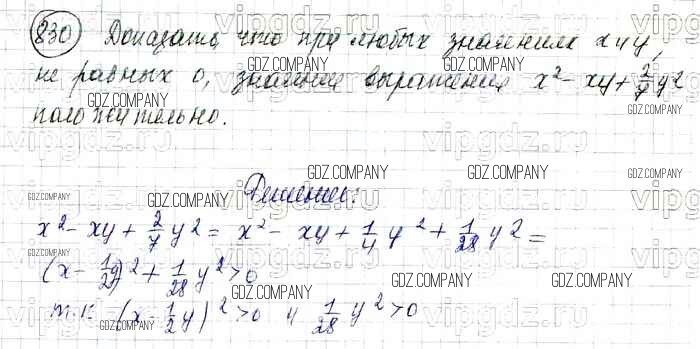 830 Доказать, что при любых значениях x и y,
не равных 0, значение выражения x² - xy + 2/7 y²
положительно.
Решение:
x² - xy + 2/7 y² = x² - xy + 1/4 y² + 1/28 y² =
(x - 1/2y)² + 1/28 y² > 0
т.к. (x - 1/2 y)² > 0 и 1/28 y² > 0
GDZ.COMPANY
vipgdz.ru